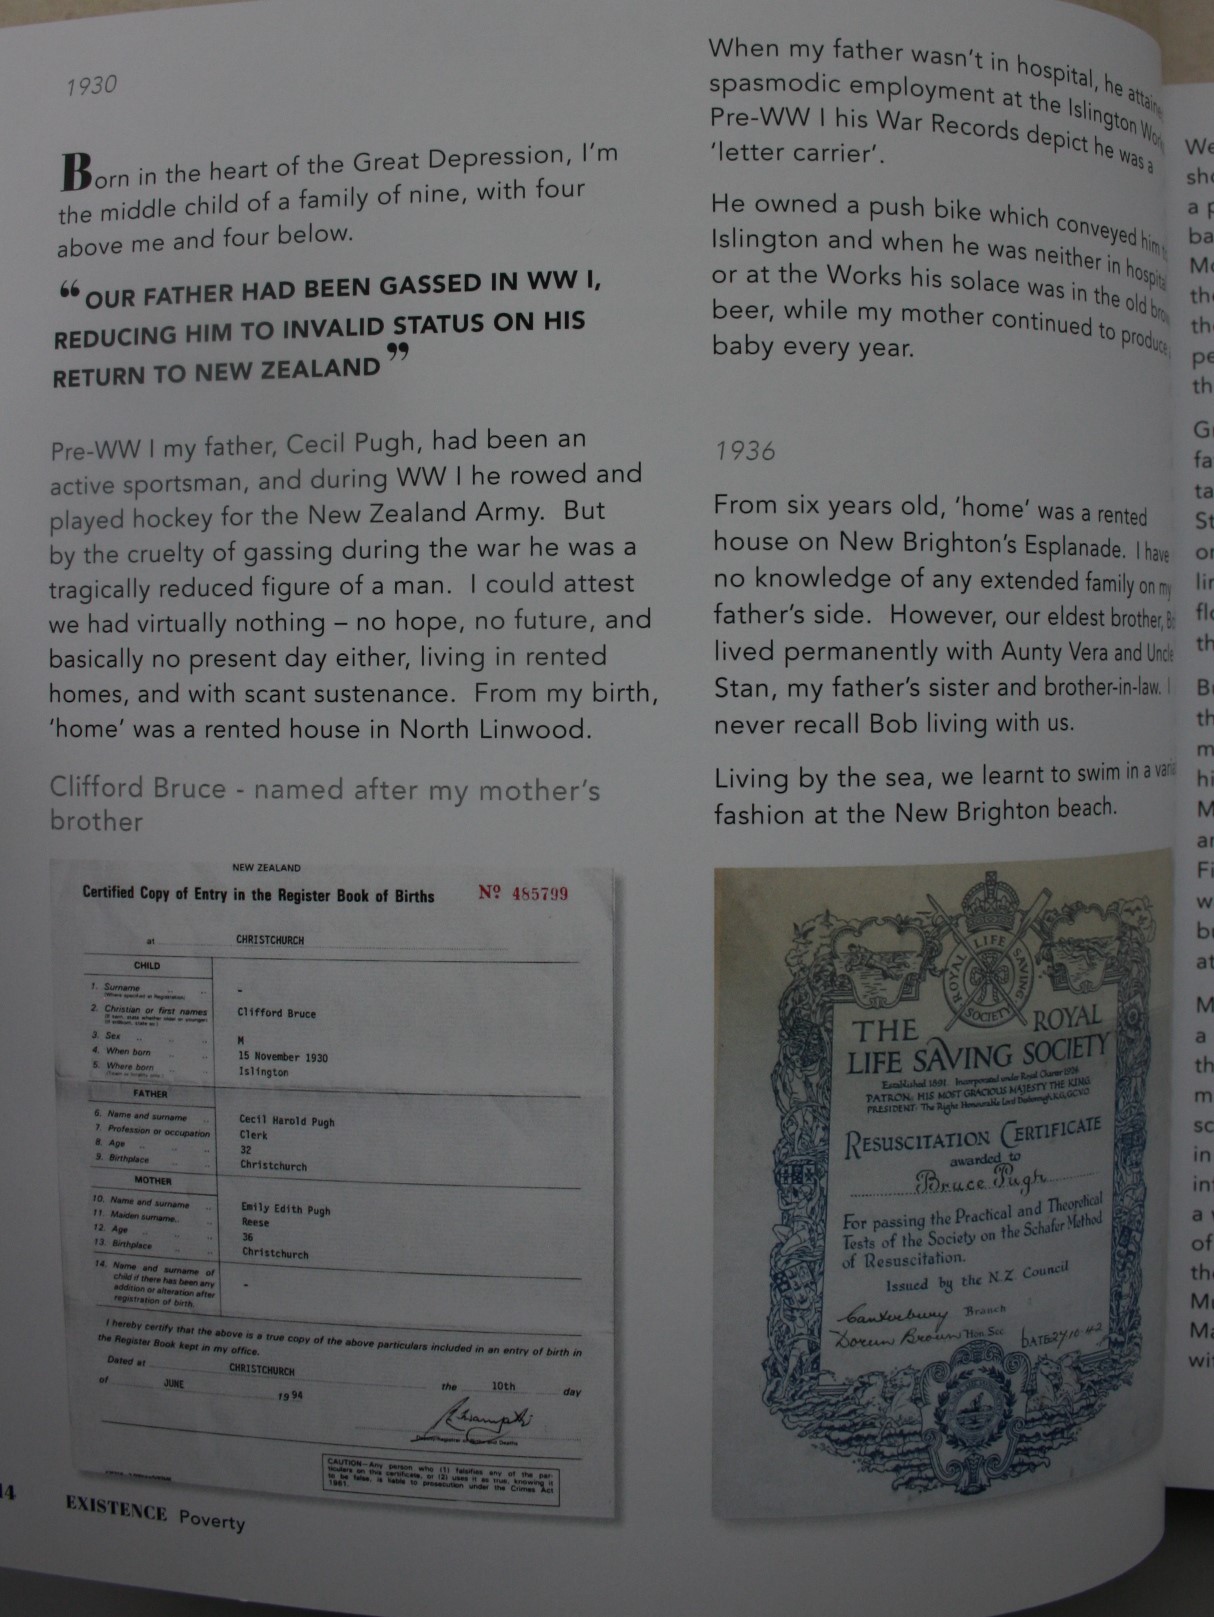 1930
Born in the heart of the Great Depression, I'm
the middle child of a family of nine, with four
above me and four below.
“OUR FATHER HAD BEEN GASSED IN WW I,
REDUCING HIM TO INVALID STATUS ON HIS
RETURN TO NEW ZEALAND”
Pre-WW I my father, Cecil Pugh, had been an
active sportsman, and during WW I he rowed and
played hockey for the New Zealand Army.  But
by the cruelty of gassing during the war he was a
tragically reduced figure of a man.  I could attest
we had virtually nothing – no hope, no future, and
basically no present day either, living in rented
homes, and with scant sustenance.  From my birth,
'home' was a rented house in North Linwood.
Clifford Bruce - named after my mother's
brother
NEW ZEALAND
Certified Copy of Entry in the Register Book of Births
Nº 485799
at CHRISTCHURCH
CHILD
1. Surname -
(Where specified at Registration)
2. Christian or first names Clifford Bruce
3. Sex M
4. When born 15 November 1930
5. Where born Islington
FATHER
6. Name and surname Cecil Harold Pugh
7. Profession or occupation Clerk
8. Age 32
9. Birthplace Christchurch
MOTHER
10. Name and surname Emily Edith Pugh
11. Maiden surname Reese
12. Age 36
13. Birthplace Christchurch
14. Name and surname of
child if there has been any
addition or alteration after
registration of birth. -
I hereby certify that the above is a true copy of the above particulars included in an entry of birth in
the Register Book kept in my office.
Dated at CHRISTCHURCH the 10th day
of JUNE 1994
CAUTION—Any person who (1) falsifies any of the par-
ticulars on this certificate, or (2) uses it as true, knowing it
to be false, is liable to prosecution under the Crimes Act
1961.
14
EXISTENCE Poverty
When my father wasn't in hospital, he
spasmodic employment at the Islington
Pre-WW I his War Records depict he was a
'letter carrier'.
He owned a push bike which conveyed him
Islington and when he was neither in hospital
or at the Works his solace was in the old
beer, while my mother continued to produce
baby every year.
1936
From six years old, 'home' was a rented
house on New Brighton's Esplanade. I have
no knowledge of any extended family on my
father's side.  However, our eldest brother,
lived permanently with Aunty Vera and Uncle
Stan, my father's sister and brother-in-law. I
never recall Bob living with us.
Living by the sea, we learnt to swim in a
fashion at the New Brighton beach.
ROYAL LIFE SAVING SOCIETY
THE ROYAL
LIFE SAVING SOCIETY
Established 1891. Incorporated under Royal Charter 1924
PATRON: HIS MOST GRACIOUS MAJESTY THE KING
PRESIDENT: The Right Honourable Lord Desborough, K.G., G.C.V.O
RESUSCITATION CERTIFICATE
awarded to
Bruce Pugh
For passing the Practical and Theoretical
Tests of the Society on the Schafer Method
of Resuscitation.
Issued by the N.Z. Council
Canterbury Branch
Doreen Brown Hon. Sec. DATE 27·10·42